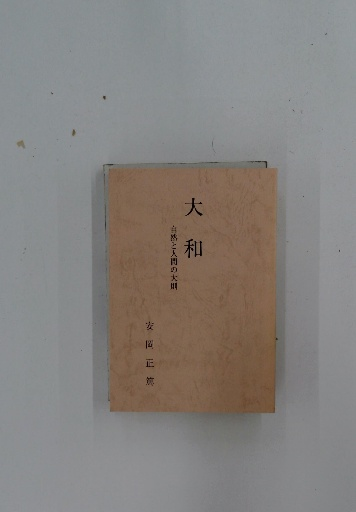 大和
自然と人間の大則
安岡正篤